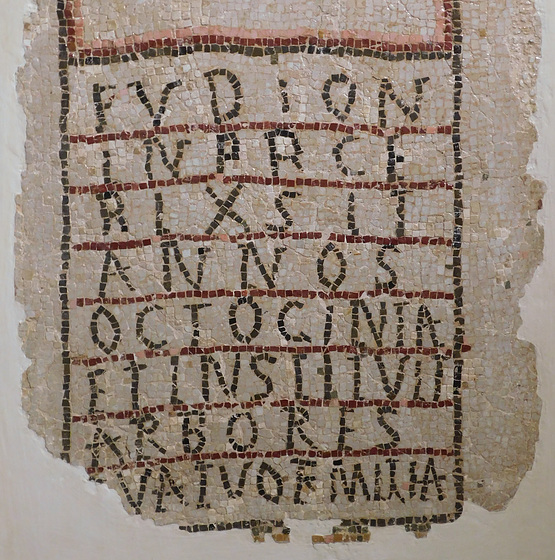 FVDION
INPACE
BIXSIT
ANNOS
OCTOGINTA
ETINSTITVIT
ARBORES
QVATVORMILIA